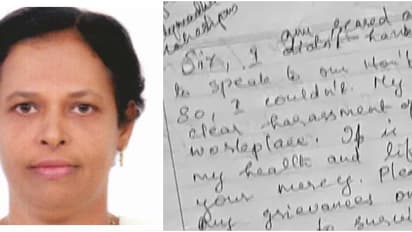 Sir, I am scared a
didn't have
to speak to our Hon'
So, I couldn't. My
clear harassment
workplace. It is
my health and lif
your mercy. Plea
my grievances
to